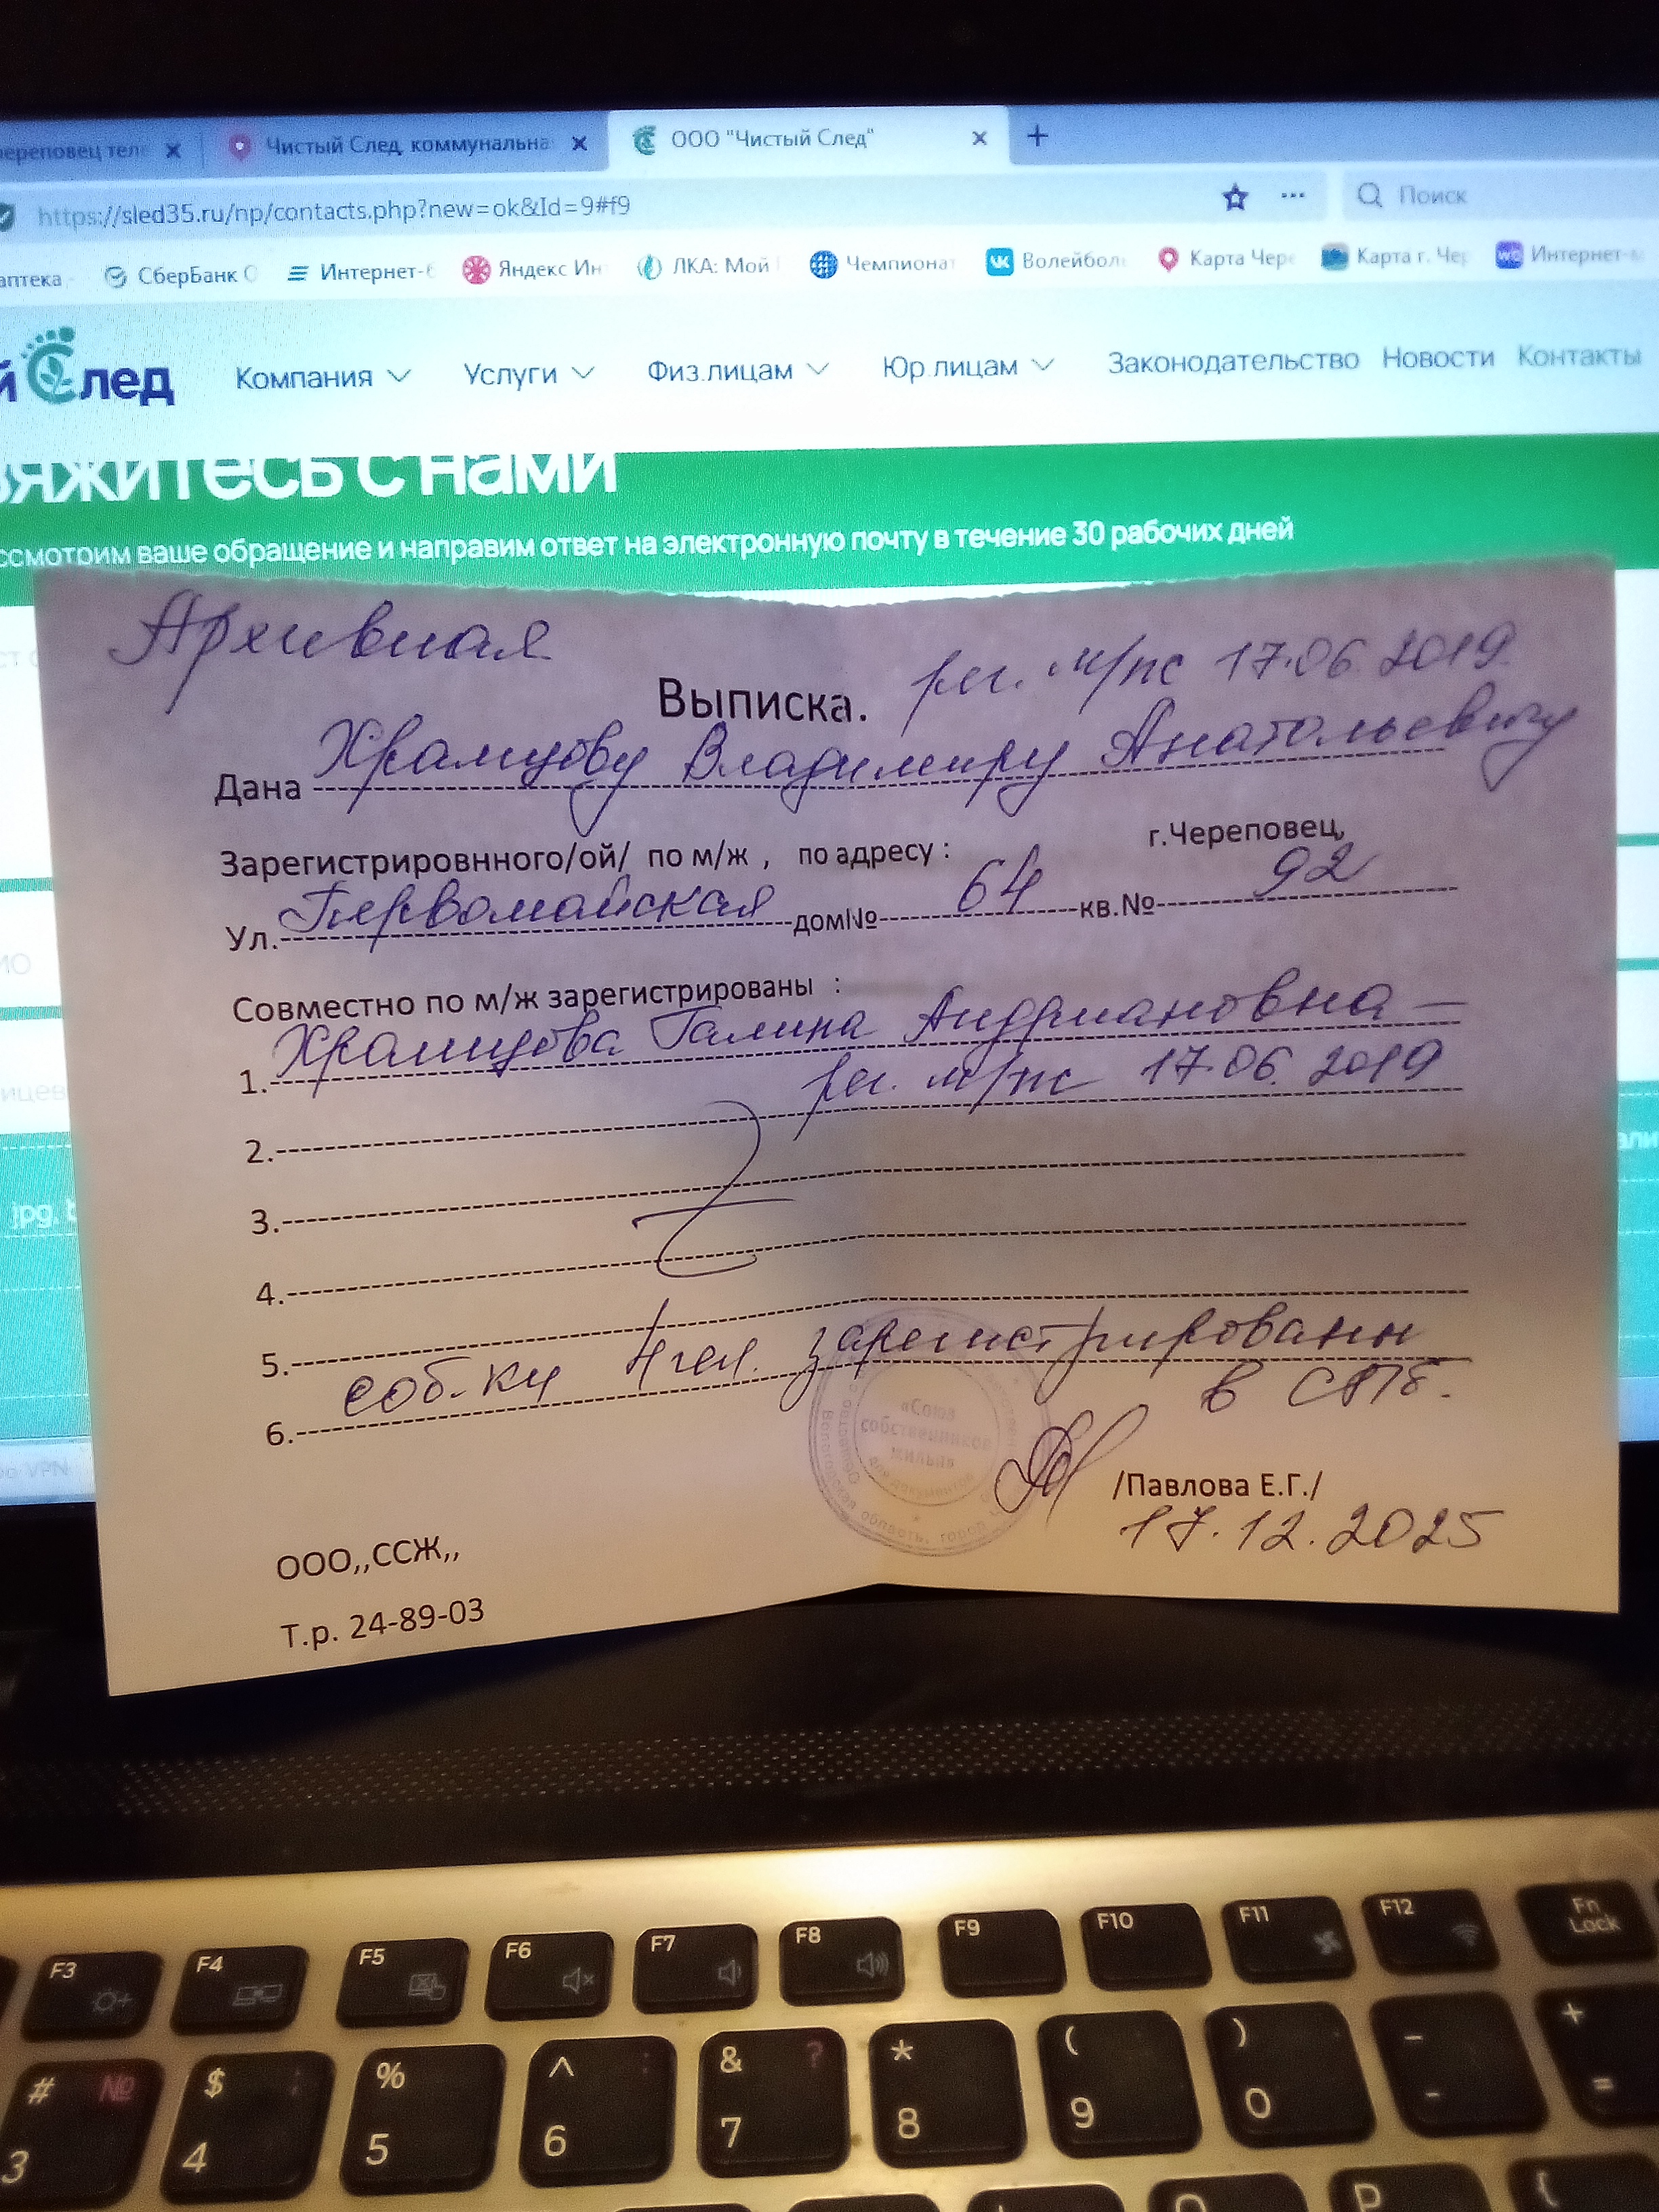 ереповец теле
Чистый След, коммунальна
ООО "Чистый След"
https://sled35.ru/np/contacts.php?new=ok&Id=9#f9
Поиск
аптека
СберБанк О
Интернет-б
Яндекс Ин
ЛКА: Мой
Чемпионат
Волейбол
Карта Чере
Карта г. Чер
Интернет-м
й След
Компания
Услуги
Физ.лицам
Юр.лицам
Законодательство
Новости
Контакты
вяжитесь с нами
ссмотрим ваше обращение и направим ответ на электронную почту в течение 30 рабочих дней
Архивная
Выписка. рег. м/ж 17.06.2019
Дана Храмцову Владимиру Анатольевичу
Зарегистрировнного/ой/ по м/ж , по адресу : г.Череповец,
Ул. Первомайская дом№ 64 кв.№ 92
Совместно по м/ж зарегистрированы :
1. Храмцова Галина Андриановна –
рег. м/ж 17.06.2019
2.
3.
4.
5.
соб-ки 4 чел. зарегистрированы
6.
в СПб.
«Союз
собственников
жилья»
для документов
Вологодская область, город
/Павлова Е.Г./
17.12.2025
ООО,,ССЖ,,
Т.р. 24-89-03
ИО
ицев
jpg, b
VPN
F3
F4
F5
F6
F7
F8
F9
F10
F11
F12
Fn Lock
# № 3
$ ; 4
% 5
^ : 6
& ? 7
* 8
( 9
) 0
_ -
+ =
P
{